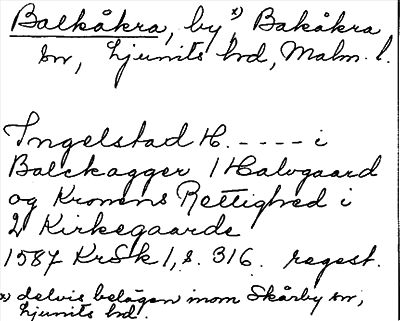 Balkåkra, by x), Bakåkra
sn, Ljunits hd, Malm. l.
Ingelstad H. - - - - i
Balckagger 1 Halvgaard
og Kronens Rettighed i
2 Kirkegaarde
1587 KrSk 1, s. 316. regest.
x) delvis belägen inom Skårby sn,
Ljunits hd.